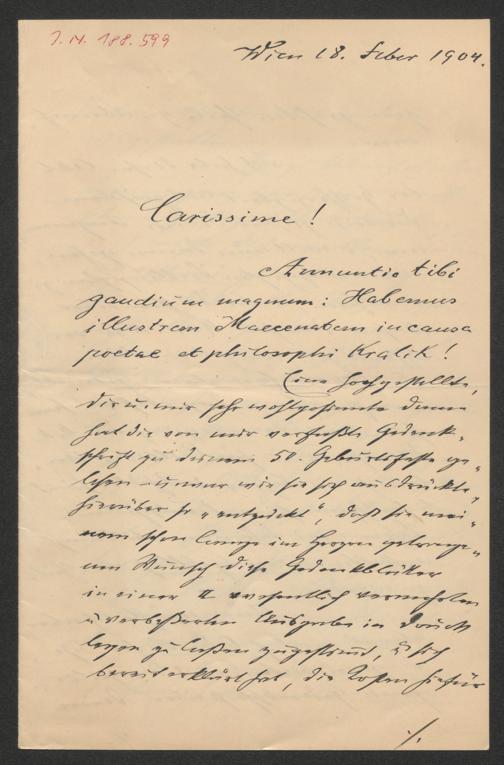 J. N. 188.599
Wien 18. Feber 1904.
Carissime!
Annuntio tibi
gaudium magnum: Habemus
illustrem Maecenatem in causa
poetae et philosophi Kralik!
Eine hochgestellte,
dir u. mir sehr wohlgesinnte Dame
hat die von mir verfaßte Gedenk-
schrift zu deinem 50. Geburtsfeste ge-
lesen u. war wie sie sich ausdrückte,
hierüber so "entzückt", daß sie mei-
nem schon lange im Herzen getrage-
nen Wunsch diese Gedenkblätter
in einer II wesentlich vermehrten
u. verbeßerten Ausgabe in Druck
legen zu laßen zugestimmt, u. sich
bereit erklärt hat, die Kosten hiefür
./.